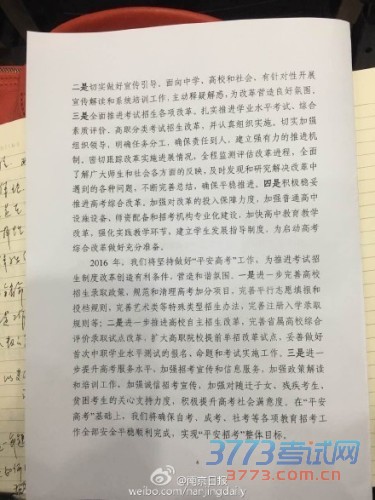 二是切实做好宣传引导，面向中学、高校和社会，有针对性开展
宣传解读和系统培训工作，主动释疑解惑，为改革营造良好氛围。
三是全面推进考试招生各项改革。扎实推进学业水平考试、综合
素质评价、高职分类考试招生改革，并认真组织实施。切实加强
组织领导，明确任务分工，确保责任到人，建立强有力的推进机
制，密切跟踪改革实施进展情况，全程监测评估改革进程，全面
了解广大师生和社会各方面的反映，及时发现和研究解决改革中
遇到的各种问题，不断完善总结，确保平稳推进。四是积极稳妥
推进高考综合改革。加强对改革的投入保障力度，加强普通高中
设施设备、师资配备和招考机构专业化建设，加快高中教育教学
改革，强化实践教学环节，建立学生发展指导制度，为启动高考
综合改革做好充分准备。
2016 年，我们将坚持做好“平安高考”工作，为推进考试招
生制度改革创造有利条件，营造和谐氛围。一是进一步完善高校
招生录取政策，规范和清理高考加分项目，完善平行志愿填报和
投档规则，完善艺术类等特殊类型招生办法，完善注册入学录取
规则等；二是进一步推进高校自主招生改革，完善省属高校综合
评价录取试点改革，扩大高职院校提前单招改革试点，妥善做好
首次中职学业水平测试的报名、命题和考试实施工作。三是进一
步提升高考服务水平，加强招考宣传和信息服务，加强政策解读
和培训工作，加强诚信招考宣传，加强对随迁子女、残疾考生、
贫困考生的关心支持力度，积极提升高考社会满意度。在“平安
高考”基础上，我们将确保自考、成考、社考等各项教育招考工
作全部安全平稳顺利完成，实现“平安招考”整体目标。
3773考试网
www.3773.com.cn
@南京日报
weibo.com/nanjingdaily